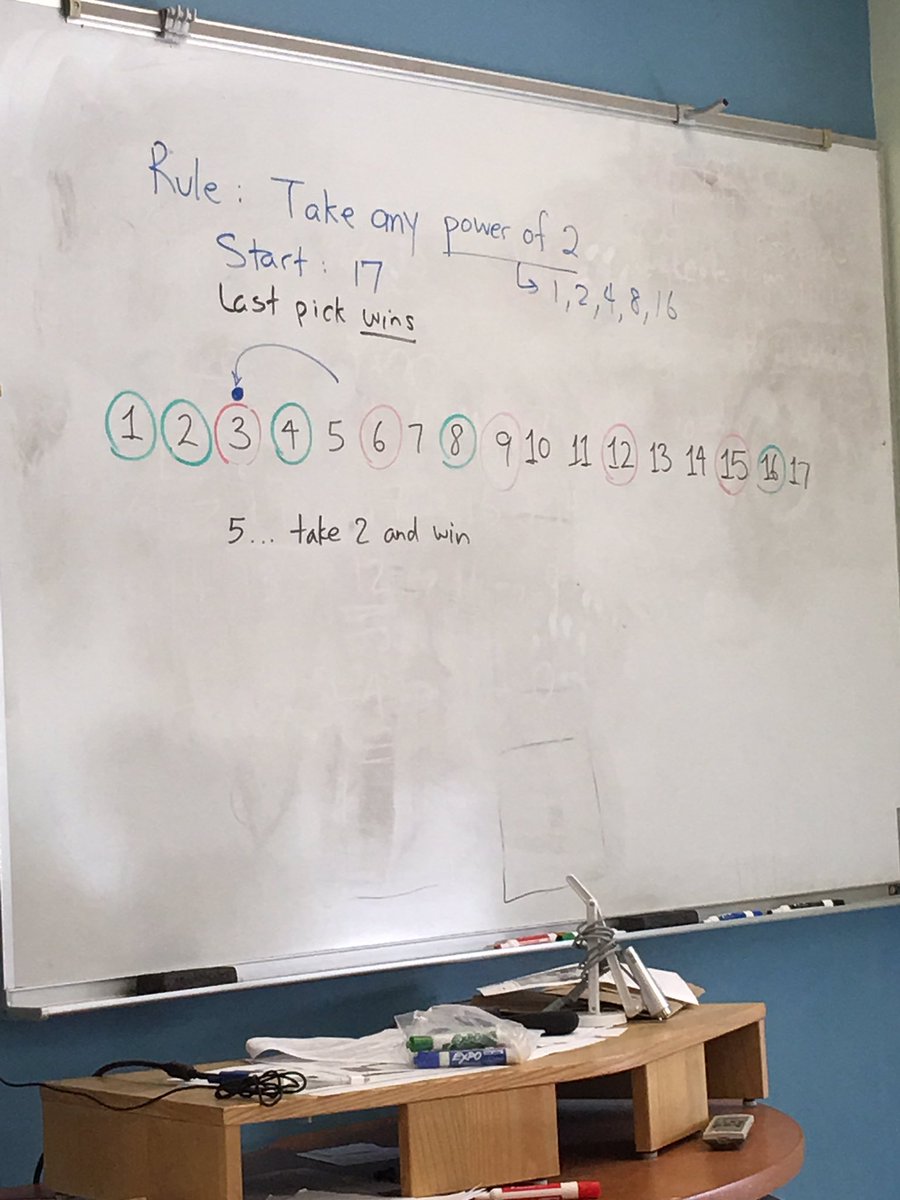 Rule: Take any power of 2
↳ 1, 2, 4, 8, 16
Start: 17
Last pick wins
1 2 3 4 5 6 7 8 9 10 11 12 13 14 15 16 17
5... take 2 and win
EXPO